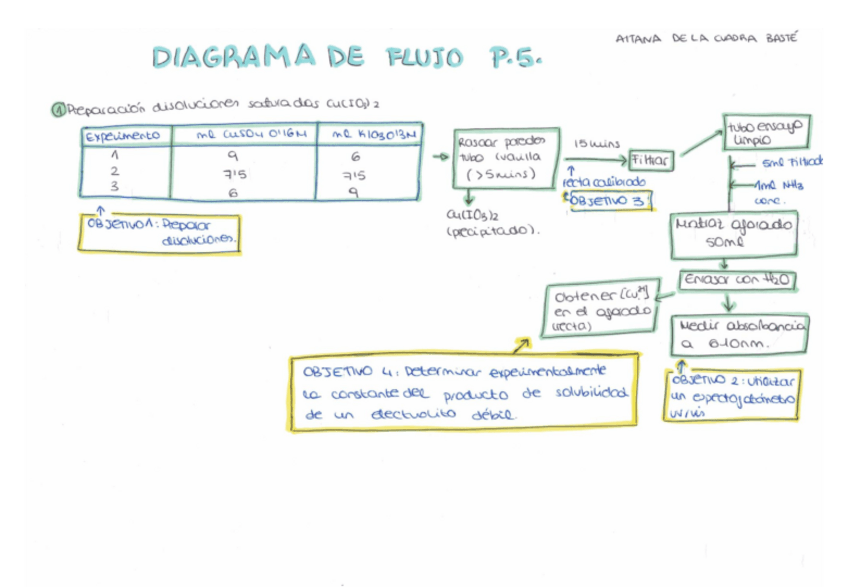 AITANA DE LA CUADRA BASTÉ
DIAGRAMA DE FLUJO P.5.
① Preparación disoluciones saturadas Cu(IO3)2
Experimento mL CuSO4 0'16M mL KIO3 0'3M
1 9 6
2 7'5 7'5
3 6 9
OBJETIVO 1: Preparar
disoluciones.
Rascar paredes
tubo c/varilla
(>5mins)
Cu(IO3)2
(precipitado).
15mins
recta calibrado
OBJETIVO 3
Filtrar
tubo ensayo
limpio
5mL Filtrado
1mL NH3
conc.
Matraz aforado
50mL
Enrasar con H2O
Obtener [Cu2+]
en el aforado
(recta)
Medir absorbancia
a 610nm.
OBJETIVO 4: Determinar experimentalmente
la constante del producto de solubilidad
de un electrolito débil
OBJETIVO 2: Utilizar
un espectofotómetro
uv/vis